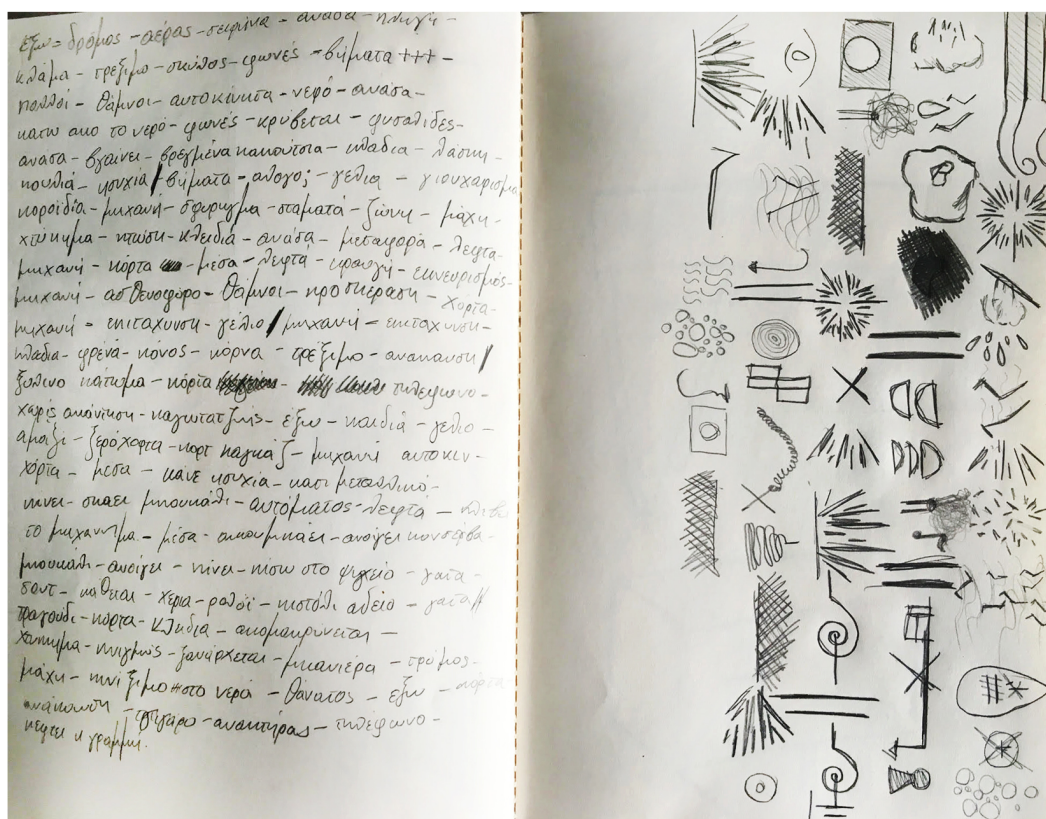 έξω = δρόμος - αέρας - σειρήνα - ανάσα -
κλάμα - τρέξιμο - σκύλος - φωνές - βήματα +++ -
πολλοί - θάμνοι - αυτοκίνητα - νερό - ανάσα -
κατω απο το νερό - φωνές - κρύβεται - φυσαλιδες -
ανασα - βγαίνει - βρεγμένα παπούτσια - κλαδια - λάσπη -
πουλιά - ησυχία / βήματα - αλογο; - γελια -
κοροϊδία - μηχανή - σφυριγμα - σταματά - ζώνη - μάχη -
χτύπημα - πτωση - κλειδιά - ανάσα - μεταφορά - λεφτα -
μηχανή - πόρτα - μέσα - λεφτα - κραυγή - εκνευρισμός -
μηχανή - ασθενοφόρο - θάμνοι - προσπέραση - χορτα -
μηχανή - επιταχυνση - γέλιο / μηχανή - επιταχυνση -
κλαδια - φρένα - πόνος - κόρνα - τρέξιμο - αναπαυση /
ξύλινο πάτημα - πόρτα - τηλεφωνο -
χωρίς απάντηση - έξω - παιδιά - γελιο -
αμαξι - ξερόχορτα - πορτ μπαγκαζ - μηχανή αυτοκιν -
χόρτα - μεσα - κάνε ησυχία - κατι μεταλλικό -
πινει - σπαει μπουκάλι - αυτόματος - λεφτά -
το μηχανημα - μέσα - ακουμπάει - ανοίγει κονσέρβα -
μπουκάλι - ανοίγει - πινει - πισω στο ψυγείο - γατα -
κάθεται - χερια - ρολόϊ - πιστόλι αδειο - γατα //
τραγούδι - πόρτα - κλειδια - απομακρύνεται -
χτυπημα - πνιγμός - ξανάρχεται - μπανιέρα - τρόμος -
μάχη - πνίξιμο στο νερό - θάνατος - έξω - πόρτα -
- τσιγάρο - αναπτήρας - τηλέφωνο -
πεφτει η γραμμή.